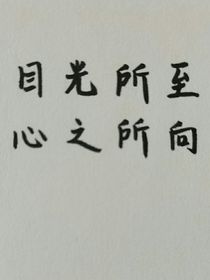 目光所至
心之所向